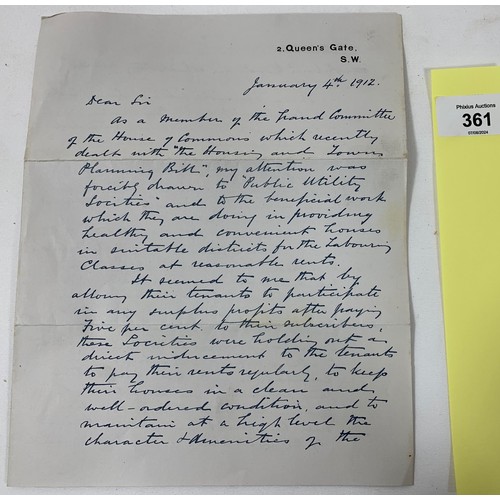 2. Queen's Gate,
S.W.
January 4th. 1912.
Dear Sir
As a member of the Grand Committee
of the House of Commons which recently
dealt with "the Housing and Town
Planning Bill", my attention was
forcibly drawn to "Public Utility
Societies" and to the beneficial work
which they are doing in providing
healthy and convenient houses
in suitable districts for the Labouring
Classes at reasonable rents.
It seemed to me that by
allowing their tenants to participate
in any surplus profits after paying
Five per cent to their subscribers,
these Societies were holding out a
direct inducement to the tenants
to pay their rents regularly, to keep
their houses in a clean and
well-ordered condition, and to
maintain at a high level the
character & amenities of the
Phixius Auctions
361
07/08/2024